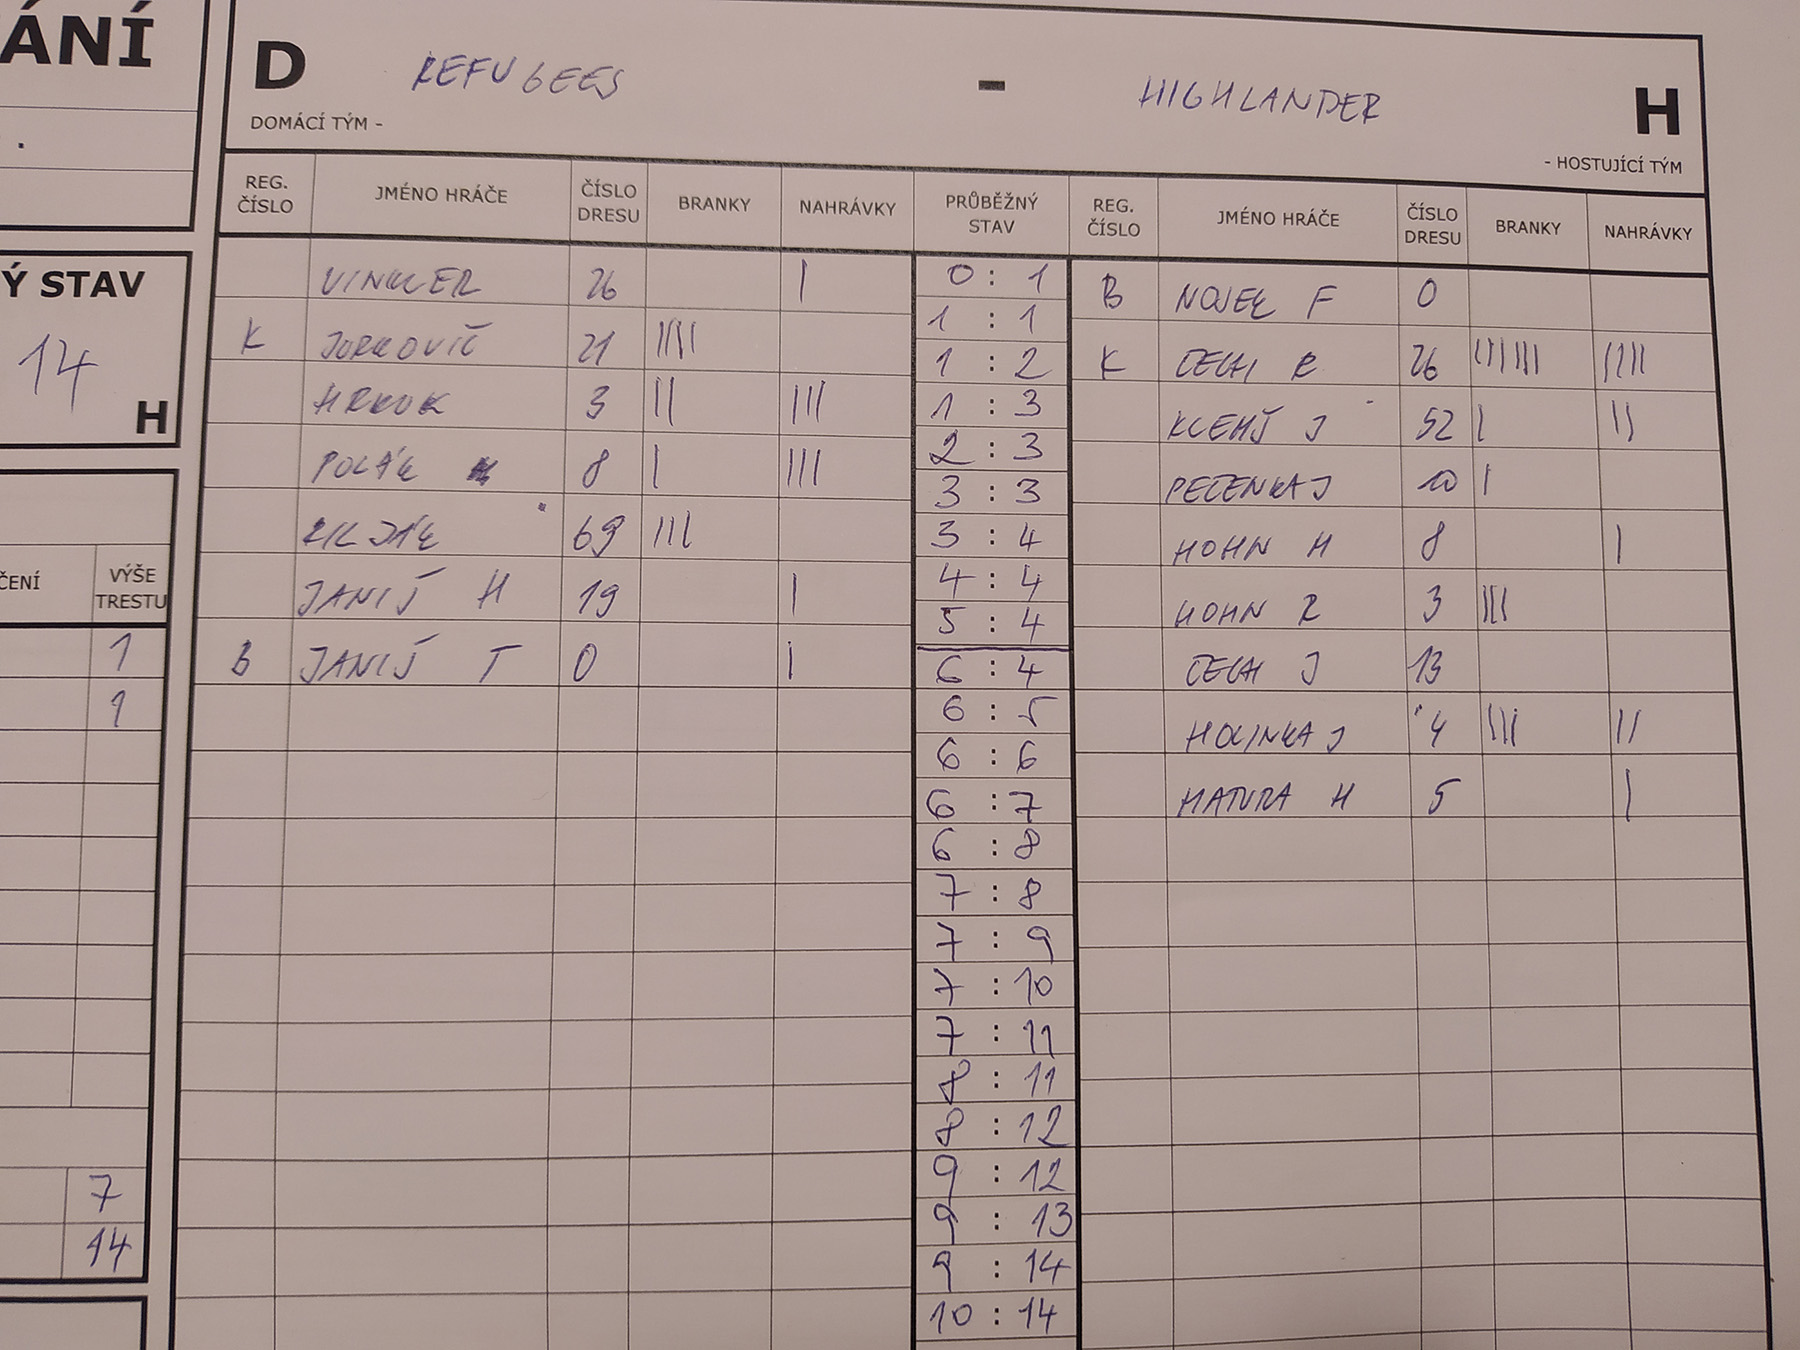 ÁNÍ
.
Ý STAV
14
H
ČENÍ
VÝŠE TRESTU
1
1
7
14
D REFUGEES - HIGHLANDER H
DOMÁCÍ TÝM - - HOSTUJÍCÍ TÝM
REG. ČÍSLO JMÉNO HRÁČE ČÍSLO DRESU BRANKY NAHRÁVKY PRŮBĚŽNÝ STAV REG. ČÍSLO JMÉNO HRÁČE ČÍSLO DRESU BRANKY NAHRÁVKY
VINKLER 26 |
K JURKOVIČ 21 ||||
3 || |||
POLÁK 8 | |||
69 |||
JANIŠ H 19 |
B JANIŠ T 0 |
0 : 1
1 : 1
1 : 2
1 : 3
2 : 3
3 : 3
3 : 4
4 : 4
5 : 4
6 : 4
6 : 5
6 : 6
6 : 7
6 : 8
7 : 8
7 : 9
7 : 10
7 : 11
8 : 11
8 : 12
9 : 12
9 : 13
9 : 14
10 : 14
B F 0
K CECH R 26 |||||| ||||
J 52 | ||
PECENKA J 10 |
HOHN H 8 |
HOHN R 3 |||
CECH J 13
HOLINKA J 4 ||| ||
MATURA H 5 |